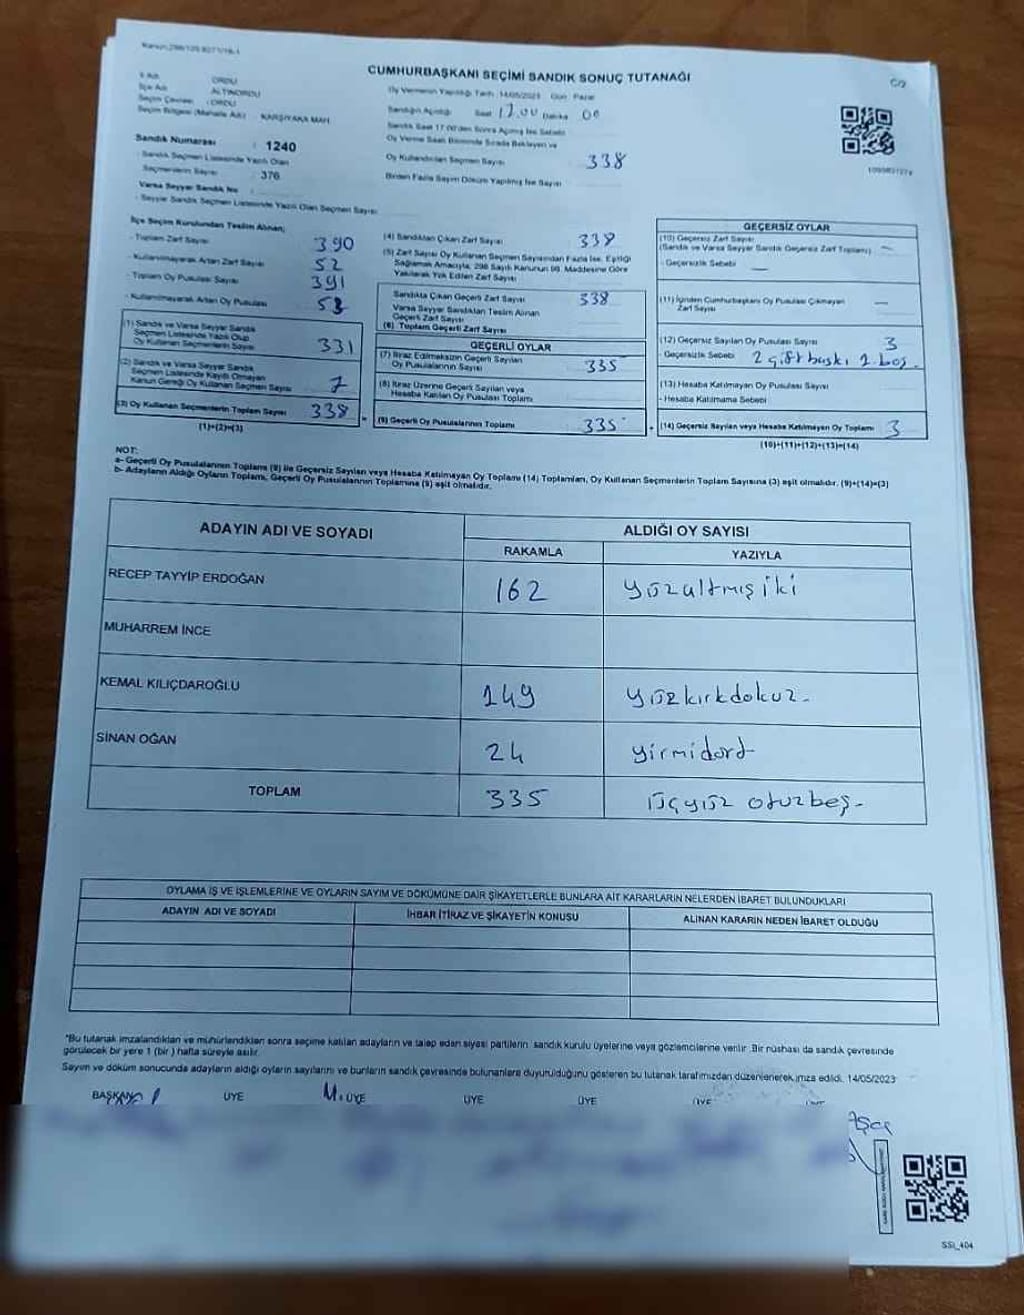 Kanun:298/105 6271/16-1
CUMHURBAŞKANI SEÇİMİ SANDIK SONUÇ TUTANAĞI
İl Adı : ORDU
İlçe Adı : ALTINORDU
Seçim Çevresi : ORDU
Seçim Bölgesi (Mahalle Adı) : KARŞIYAKA MAH.
Sandık Numarası : 1240
- Sandık Seçmen Listesinde Yazılı Olan
Seçmenlerin Sayısı : 376
Varsa Seyyar Sandık No :
- Seyyar Sandık Seçmen Listesinde Yazılı Olan Seçmen Sayısı
Oy Vermenin Yapıldığı Tarih : 14/05/2023 Gün : Pazar
Sandığın Açıldığı Saat 17.00 Dakika 00
Sandık Saat 17.00'den Sonra Açılmış İse Sebebi
Oy Verme Saati Bitiminde Sırada Bekleyen ve
Oy Kullandırılan Seçmen Sayısı 338
Birden Fazla Sayım Döküm Yapılmış İse Sayısı
İlçe Seçim Kurulundan Teslim Alınan;
- Toplam Zarf Sayısı 390
- Kullanılmayarak Artan Zarf Sayısı 52
- Toplam Oy Pusulası Sayısı 391
- Kullanılmayarak Artan Oy Pusulası 53
(1) Sandık ve Varsa Seyyar Sandık
Seçmen Listesinde Yazılı Olup
Oy Kullanan Seçmenlerin Sayısı 331
(2) Sandık ve Varsa Seyyar Sandık
Seçmen Listesinde Kaydı Olmayan
Kanun Gereği Oy Kullanan Seçmen Sayısı 7
(3) Oy Kullanan Seçmenlerin Toplam Sayısı 338
(1)+(2)=(3)
(4) Sandıktan Çıkan Zarf Sayısı 338
(5) Zarf Sayısı Oy Kullanan Seçmen Sayısından Fazla İse, Eşitliği
Sağlamak Amacıyla, 298 Sayılı Kanunun 98. Maddesine Göre
Yakılarak Yok Edilen Zarf Sayısı
Sandıkta Çıkan Geçerli Zarf Sayısı 338
Varsa Seyyar Sandıktan Teslim Alınan
Geçerli Zarf Sayısı
(6) Toplam Geçerli Zarf Sayısı
GEÇERLİ OYLAR
(7) İtiraz Edilmeksizin Geçerli Sayılan
Oy Pusulalarının Sayısı 335
(8) İtiraz Üzerine Geçerli Sayılan veya
Hesaba Katılan Oy Pusulası Toplamı
(9) Geçerli Oy Pusulalarının Toplamı 335
GEÇERSİZ OYLAR
(10) Geçersiz Zarf Sayısı
(Sandık ve Varsa Seyyar Sandık Geçersiz Zarf Toplamı) —
- Geçersizlik Sebebi —
(11) İçinden Cumhurbaşkanı Oy Pusulası Çıkmayan
Zarf Sayısı —
(12) Geçersiz Sayılan Oy Pusulası Sayısı 3
- Geçersizlik Sebebi 2 çift baskı 1 boş.
(13) Hesaba Katılmayan Oy Pusulası Sayısı
- Hesaba Katılmama Sebebi
(14) Geçersiz Sayılan veya Hesaba Katılmayan Oy Toplamı 3
(10)+(11)+(12)+(13)=(14)
NOT:
a- Geçerli Oy Pusulalarının Toplamı (9) ile Geçersiz Sayılan veya Hesaba Katılmayan Oy Toplamı (14) Toplamları, Oy Kullanan Seçmenlerin Toplam Sayısına (3) eşit olmalıdır. (9)+(14)=(3)
b- Adayların Aldığı Oyların Toplamı, Geçerli Oy Pusulalarının Toplamına (9) eşit olmalıdır.
ADAYIN ADI VE SOYADI ALDIĞI OY SAYISI
RAKAMLA YAZIYLA
RECEP TAYYİP ERDOĞAN 162 yüzaltmışiki
MUHARREM İNCE
KEMAL KILIÇDAROĞLU 149 yüzkırkdokuz.
SİNAN OĞAN 24 yirmidört
TOPLAM 335 üçyüz otuzbeş.
OYLAMA İŞ VE İŞLEMLERİNE VE OYLARIN SAYIM VE DÖKÜMÜNE DAİR ŞİKAYETLERLE BUNLARA AİT KARARLARIN NELERDEN İBARET BULUNDUKLARI
ADAYIN ADI VE SOYADI İHBAR İTİRAZ VE ŞİKAYETİN KONUSU ALINAN KARARIN NEDEN İBARET OLDUĞU
*Bu tutanak imzalandıktan ve mühürlendikten sonra seçime katılan adayların ve talep eden siyasi partilerin sandık kurulu üyelerine veya gözlemcilerine verilir. Bir nüshası da sandık çevresinde
görülecek bir yere 1 (bir) hafta süreyle asılır.
Sayım ve döküm sonucunda adayların aldığı oyların sayılarını ve bunların sandık çevresinde bulunanlara duyurulduğunu gösteren bu tutanak tarafımızdan düzenlenerek imza edildi. 14/05/2023
BAŞKAN ÜYE ÜYE ÜYE ÜYE ÜYE
SSİ_404